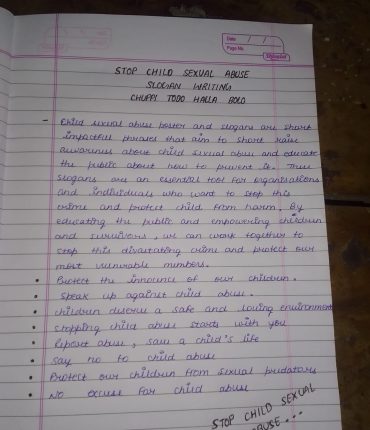 Date / /
Page No.
STOP CHILD SEXUAL ABUSE
SLOGAN WRITING
CHUPPI TODO HALLA BOLO
- Child sexual abuse poster and slogans are short
impactful phrases that aim to short raise
awareness about child sexual abuse and educate
the public about how to prevent it. These
slogans are an essential tool for organisations
and individuals who want to stop this
crime and protect child from harm. By
educating the public and empowering children
and survivors, we can work together to
stop this devastating crime and protect our
most vulnerable members.
• Protect the innocence of our children.
• Speak up against child abuse.
• children deserve a safe and loving environment
• stopping child abuse starts with you
• Report abuse, save a child's life
• Say no to child abuse
• Protect our children from sexual predators
• No excuse for child abuse
STOP CHILD SEXUAL
ABUSE...